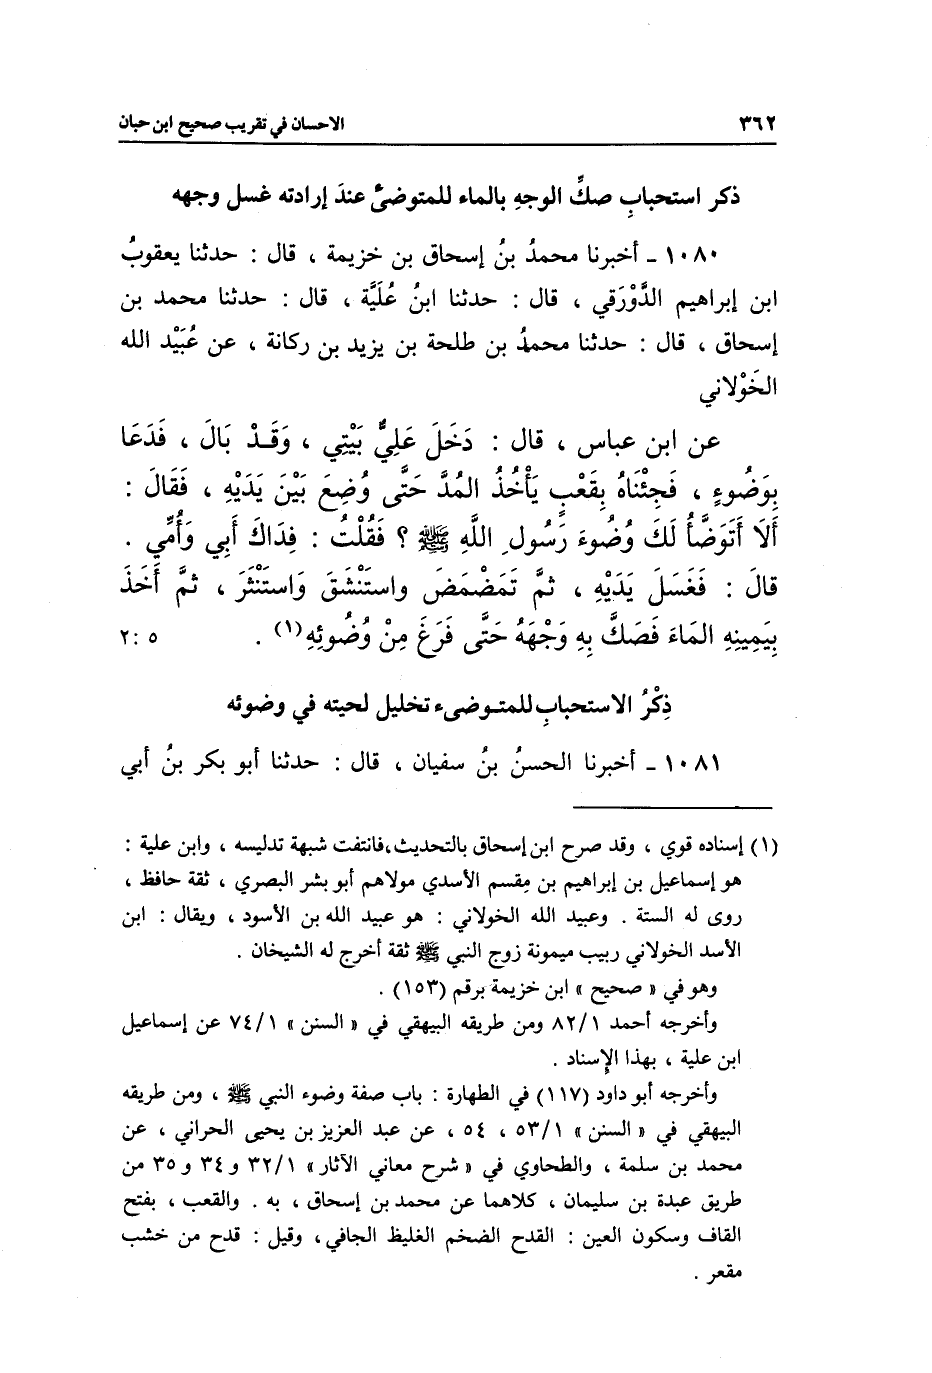 ٣٦٢ الاحسان في تقريب صحيح ابن حبان
ذكر استحبابِ صكِّ الوجهِ بالماء للمتوضئ عندَ إرادته غسل وجهه
١٠٨٠ ـ أخبرنا محمدُ بنُ إسحاق بن خزيمة ، قال : حدثنا يعقوبُ
ابن إبراهيم الدَّوْرَقي ، قال : حدثنا ابنُ عُلَيَّة ، قال : حدثنا محمد بن
إسحاق ، قال : حدثنا محمدُ بن طلحة بن يزيد بن ركانة ، عن عُبَيْد الله
الخَوْلاني
عن ابن عباس ، قال : دَخَلَ عَلِيٌّ بَيْتِي ، وَقَدْ بَالَ ، فَدَعَا
بِوَضُوءٍ ، فَجِئْنَاهُ بِقَعْبٍ يَأْخُذُ المُدَّ حَتَّى وُضِعَ بَيْنَ يَدَيْهِ ، فَقَالَ :
أَلَا أَتَوَضَّأُ لَكَ وُضُوءَ رَسُولِ اللَّهِ ﷺ ؟ فَقُلْتُ : فِدَاكَ أَبِي وَأُمِّي .
قالَ : فَغَسَلَ يَدَيْهِ ، ثمَّ تَمَضْمَضَ واستَنْشَقَ وَاستَنْثَرَ ، ثمَّ أَخَذَ
بِيَمِينِهِ المَاءَ فَصَكَّ بِهِ وَجْهَهُ حَتَّى فَرَغَ مِنْ وُضُوئِهِ(١) . ٥ : ٢
ذِكْرُ الاستحبابِ للمتوضىء تخليل لحيته في وضوئه
١٠٨١ ـ أخبرنا الحسنُ بنُ سفيان ، قال : حدثنا أبو بكر بنُ أبي
(١) إسناده قوي ، وقد صرح ابن إسحاق بالتحديث، فانتفت شبهة تدليسه ، وابن علية :
هو إسماعيل بن إبراهيم بن مِقسم الأسدي مولاهم أبو بشر البصري ، ثقة حافظ ،
روى له الستة . وعبيد الله الخولاني : هو عبيد الله بن الأسود ، ويقال : ابن
الأسد الخولاني ربيب ميمونة زوج النبي ﷺ ثقة أخرج له الشيخان .
وهو في « صحيح » ابن خزيمة برقم (١٥٣) .
وأخرجه أحمد ٨٢/١ ومن طريقه البيهقي في « السنن » ٧٤/١ عن إسماعيل
ابن علية ، بهذا الإسناد .
وأخرجه أبو داود (١١٧) في الطهارة : باب صفة وضوء النبي ﷺ ، ومن طريقه
البيهقي في « السنن » ٥٣/١ ، ٥٤ ، عن عبد العزيز بن يحيى الحراني ، عن
محمد بن سلمة ، والطحاوي في « شرح معاني الآثار » ٣٢/١ و ٣٤ و ٣٥ من
طريق عبدة بن سليمان ، كلاهما عن محمد بن إسحاق ، به . والقعب ، بفتح
القاف وسكون العين : القدح الضخم الغليظ الجافي ، وقيل : قدح من خشب
مقعر .